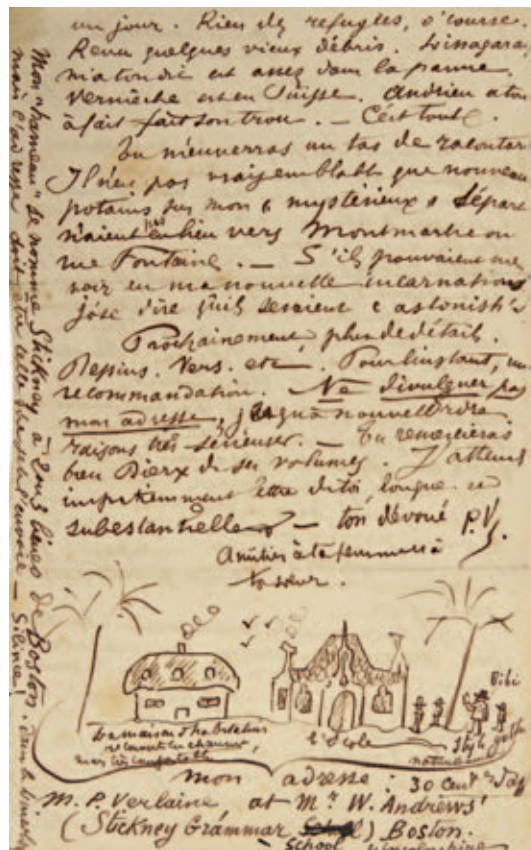 un jour. Rien des refugles, o'course.
Revu quelques vieux débris. Lissagaray
m'a tondu est assez dans la panne.
Vermèche est en Suisse. Andrieu a tout
à fait fait son trou. — C'est tout.
Tu m'enverras un tas de racontars
Il n'est pas vraisemblable que nouveaux
potains sur mon « mystérieux » départ
n'aient eu lieu vers Montmartre ou
rue Fontaine. — S'ils pouvaient me
voir en ma nouvelle incarnation
j'ose dire qu'ils seraient « astonish'd
Prochainement, plus de détail.
Dessins. Vers. etc. Pour l'instant, une
recommandation. Ne divulguer pas
mon adresse, jusqu'à nouvel ordre
raisons très sérieuses. — Tu remercieras
bien de ses volumes. J'attends
impatiemment lettre de toi, longue et
substantielle — ton dévoué P.V.
Amitiés à ta femme et à
ta sœur.
Bibi
La maison d'habitation
recouverte en chaume,
mais très confortable
l'école
Style gothique
mon adresse : 30
M. P. Verlaine at Mr W. Andrews'
(Stickney Grammar School) Boston.
School Lincolnshire
Mon "hameau" se nomme Stickney à 2 ou 3 lieues de Boston, dans le
mais l'adresse doit être celle que je t'envoie — Silence!